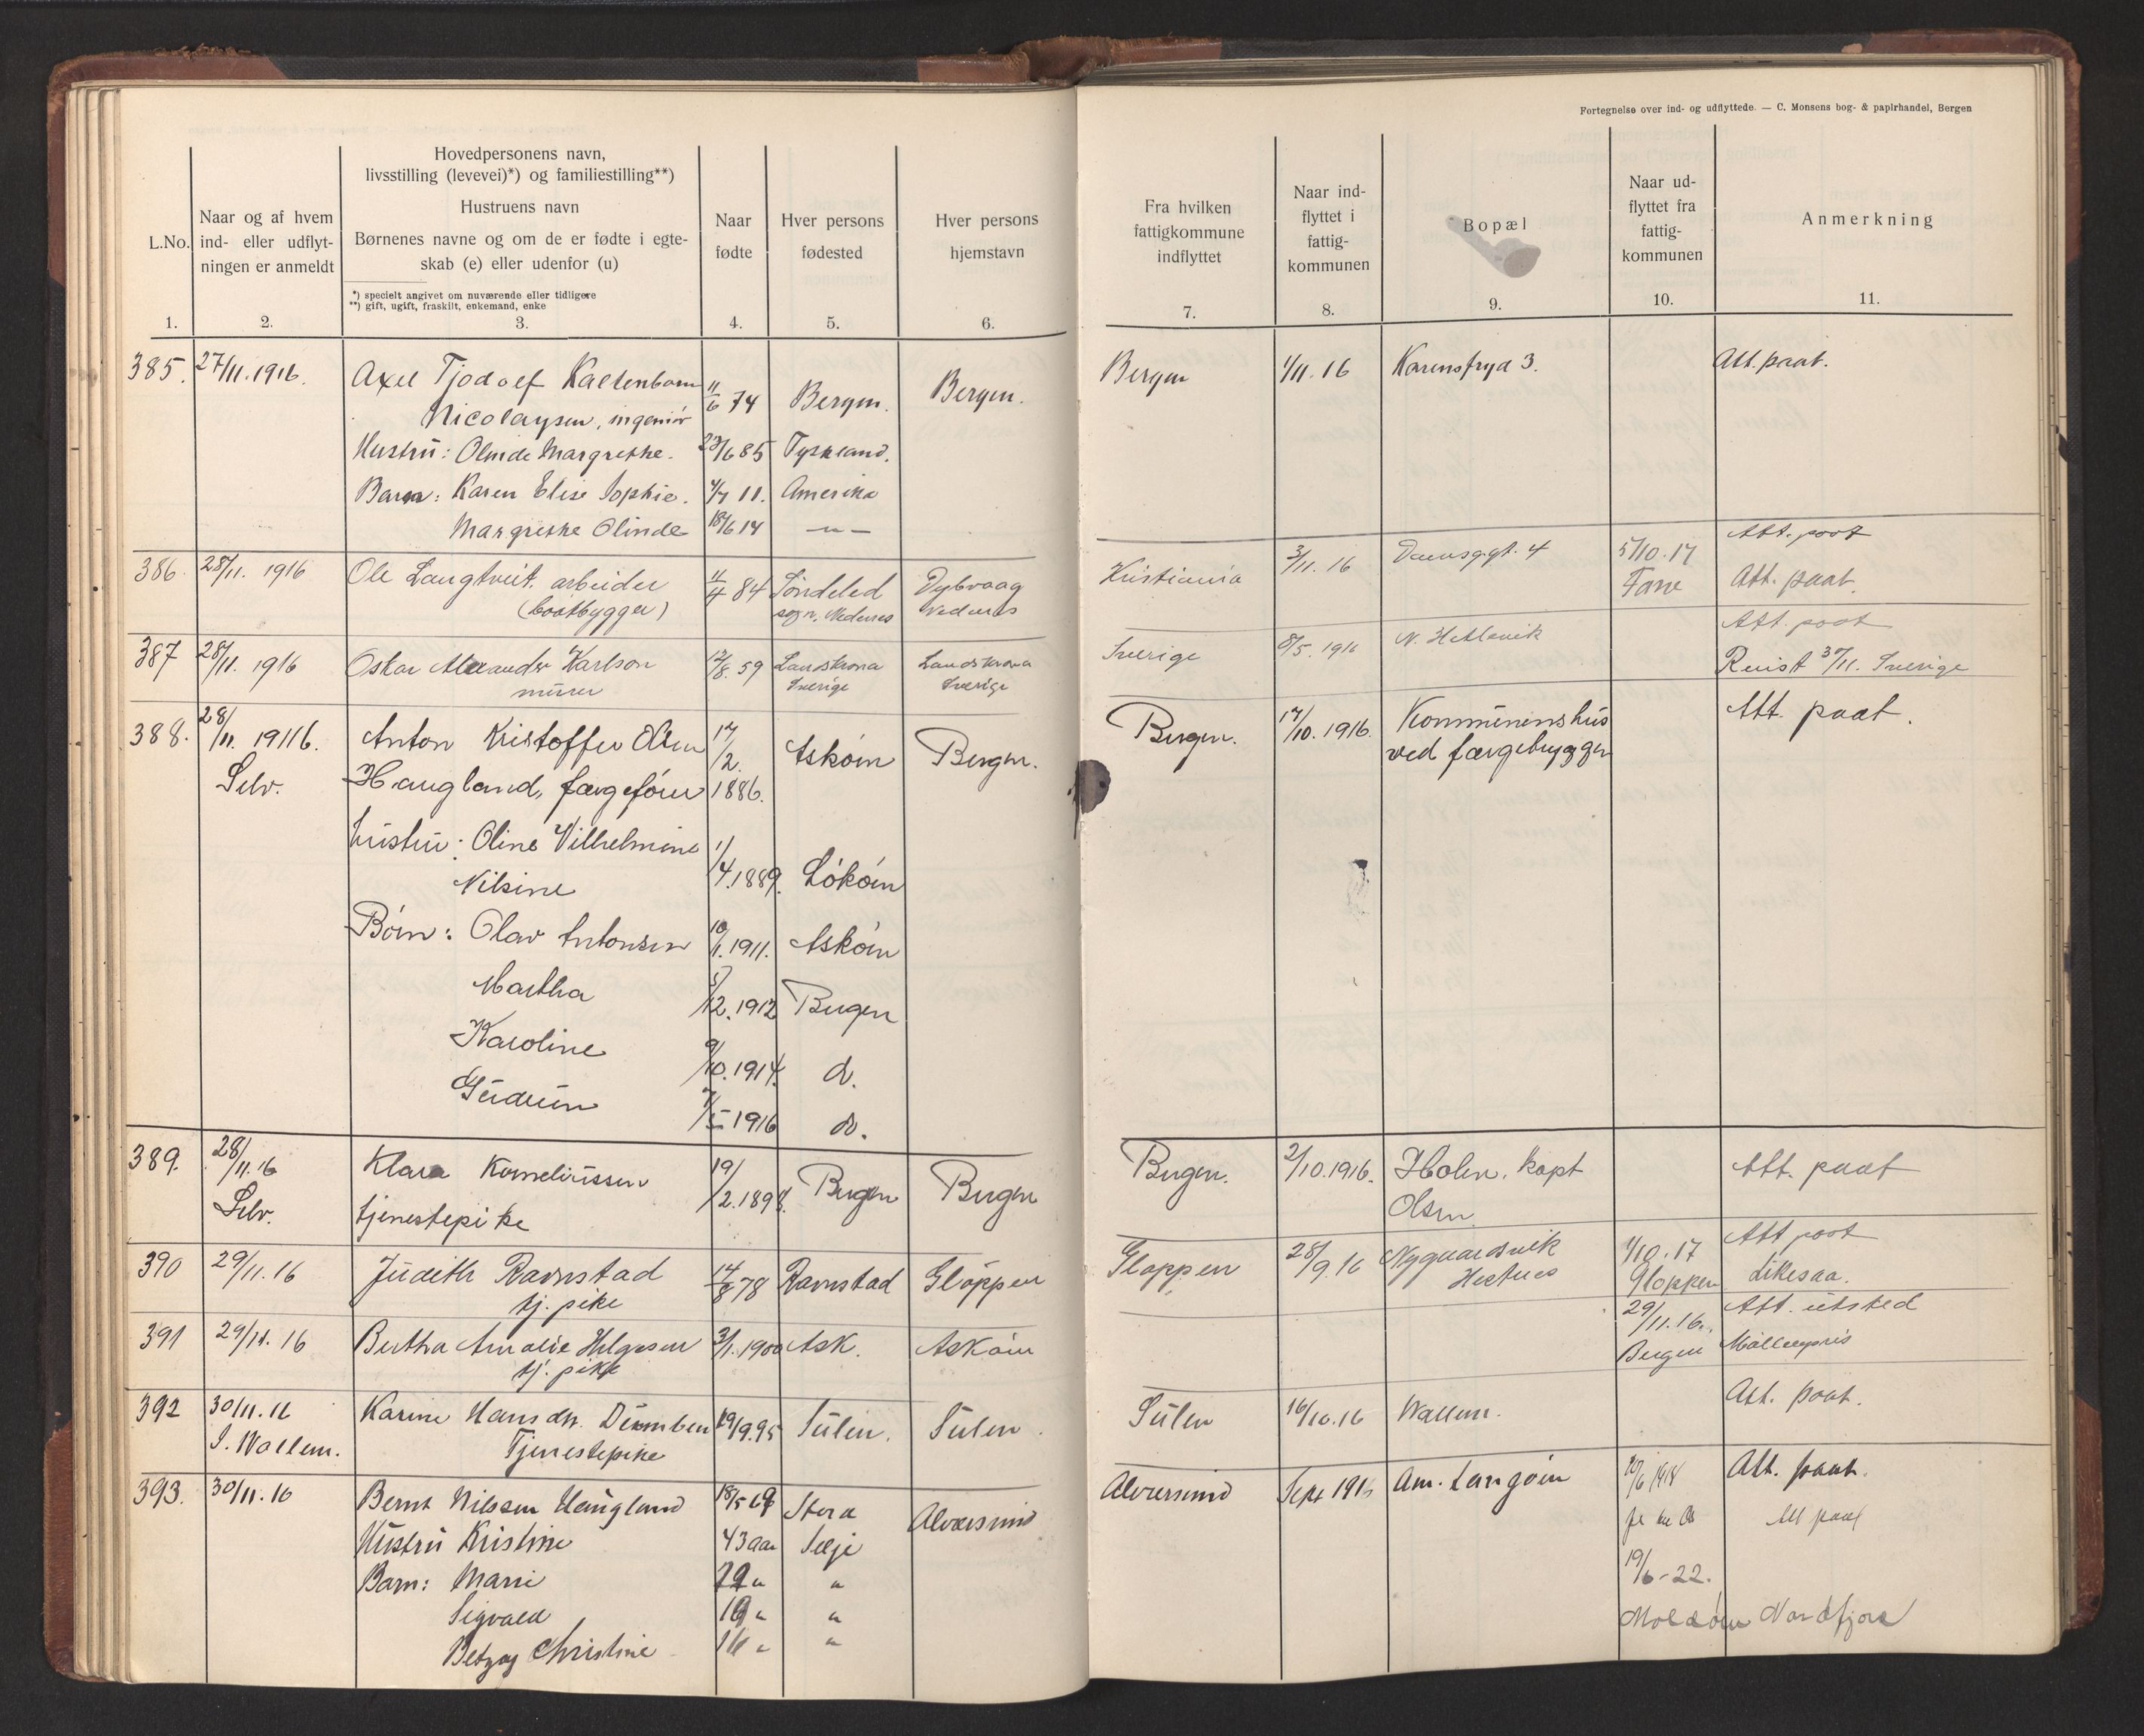 Fortegnelse over ind- og udflyttede. — C. Monsens bog- & papirhandel, Bergen
L.No.
1.
Naar og af hvem
ind- eller udflyt-
ningen er anmeldt
2.
Hovedpersonens navn,
livsstilling (levevei)*) og familiestilling**)
Hustruens navn
Børnenes navne og om de er fødte i egte-
skab (e) eller udenfor (u)
*) specielt angivet om nuværende eller tidligere
**) gift, ugift, fraskilt, enkemand, enke
3.
Naar
fødte
4.
Hver persons
fødested
5.
Hver persons
hjemstavn
6.
Fra hvilken
fattigkommune
indflyttet
7.
Naar ind-
flyttet i
fattig-
kommunen
8.
Bopæl
9.
Naar ud-
flyttet fra
fattig-
kommunen
10.
Anmerkning
11.
385. 27/11.1916. Axel Tjodolf Kaltenborn 11/6 74 Bergen. Bergen. Bergen 1/11.16 Karensfryd 3. Att. paat.
Nicolaysen, ingeniør
Hustru: Olinde Margrethe. 23/6 85 Tyskland.
Barn: Karen Elise Sophie. 4/7 11. Amerika
Margrethe Olinde 18/6 14 —"—
Att. post
386. 28/11. 1916 Ole Langtveit. arbeider 11/4 84 Søndeled Dybvaag Kristiania 3/11. 16 4 5/10.17
(baatbygger) sogn. Nedenes Nedenes Fane Att. paat.
Att. post
387 28/11. 1916 Oskar Alexander Karlson 12/8. 59 Landskrona Landskrona Sverige 8/5. 1916 N. Hetlevik
murer Sverige Sverige Reist 30/11. Sverige
388. 28/11. 19116. Anton Kristoffer Olsen 17/2. 1886. Askøen Bergen. Bergen. 17/10.1916. Kommunenshus Att. paat.
Selv. Haugland, færgefører ved færgebryggen
hustru: Oline Vilhelmine 1/4.1889. Løkøen
Nilsine
Børn: Olav Antonsen 10/1.1911. Askøen
Martha 5/12.1912 Bergen
Karoline 9/10.1914. d.
Gudrun 7/5 1916 do.
389. 28/11.16 Klara Korneliussen 19/2.1898. Bergen Bergen Bergen. 2/10.1916. Holen. kapt Att. paat
Selv. tjenestepike Olsen
390 29/11.16 Judith Ravnstad 14/8 78 Ravnstad Gloppen Gloppen 28/9.16 Nygaardsvik 1/10.17 Att post
tj. pike Gloppen Likesaa.
391 29/11.16 Bertha Amalie Helgesen 3/1.1900 Ask. Askøen 29/11.16. Att. utsted
tj. pike Bergen Møllenpris
392 30/11.16 Karine Hansdtr. 29/9.95 Sulen. Sulen. Sulen 16/10.16 Wallem. Att. paat.
S. Wallem. Tjenestepike
393. 30/11.16 Bernt Nilssen Haugland 18/5 69 Alversund Alversund Sept 1916 Am. Langøen 20/6 1918 Att. paat.
Hustru Kristine 43 aar Selje Att paat
Barn: Marie 22 " " 19/6-22.
Sigvald 19 " " Moldøen Nordfjord
Betzy Christine 16 " "